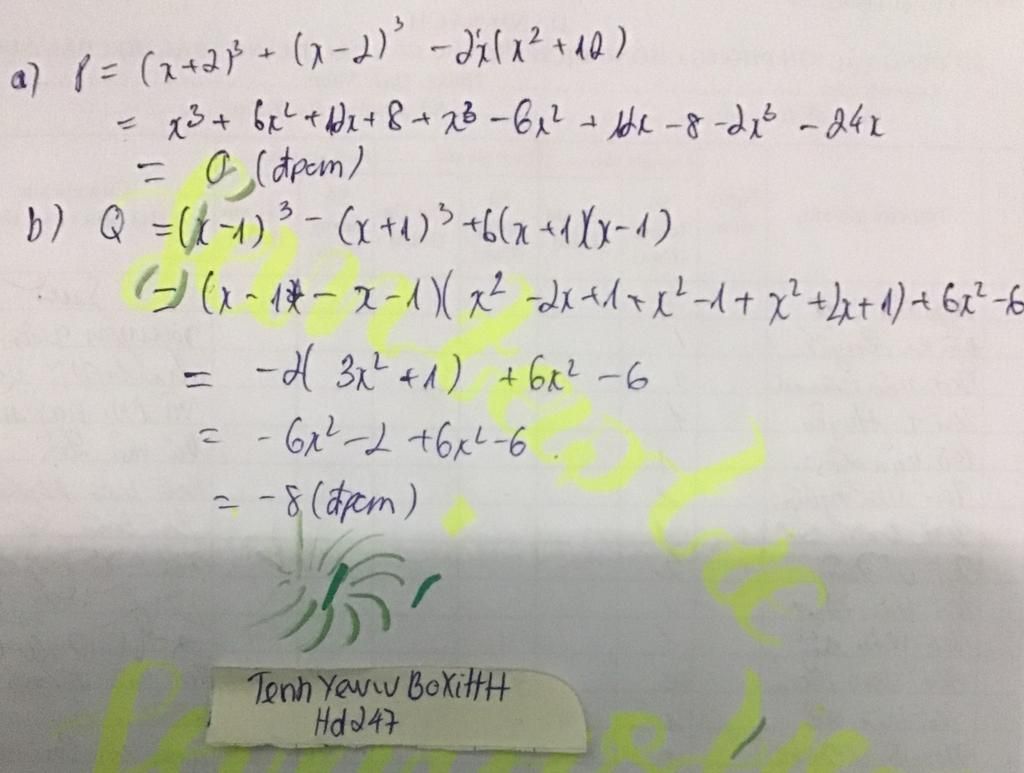 a) P = (x+2)³ + (x-2)³ - 2x(x² + 12)
= x³ + 6x² + 12x + 8 + x³ - 6x² + 12x - 8 - 2x³ - 24x
= 0 (đpcm)
b) Q = (x-1)³ - (x+1)³ + 6(x+1)(x-1)
= (x - 1 - x - 1)(x² - 2x + 1 + x² - 1 + x² + 2x + 1) + 6x² - 6
= -2(3x² + 1) + 6x² - 6
= -6x² - 2 + 6x² - 6
= -8 (đpcm)
Hd247